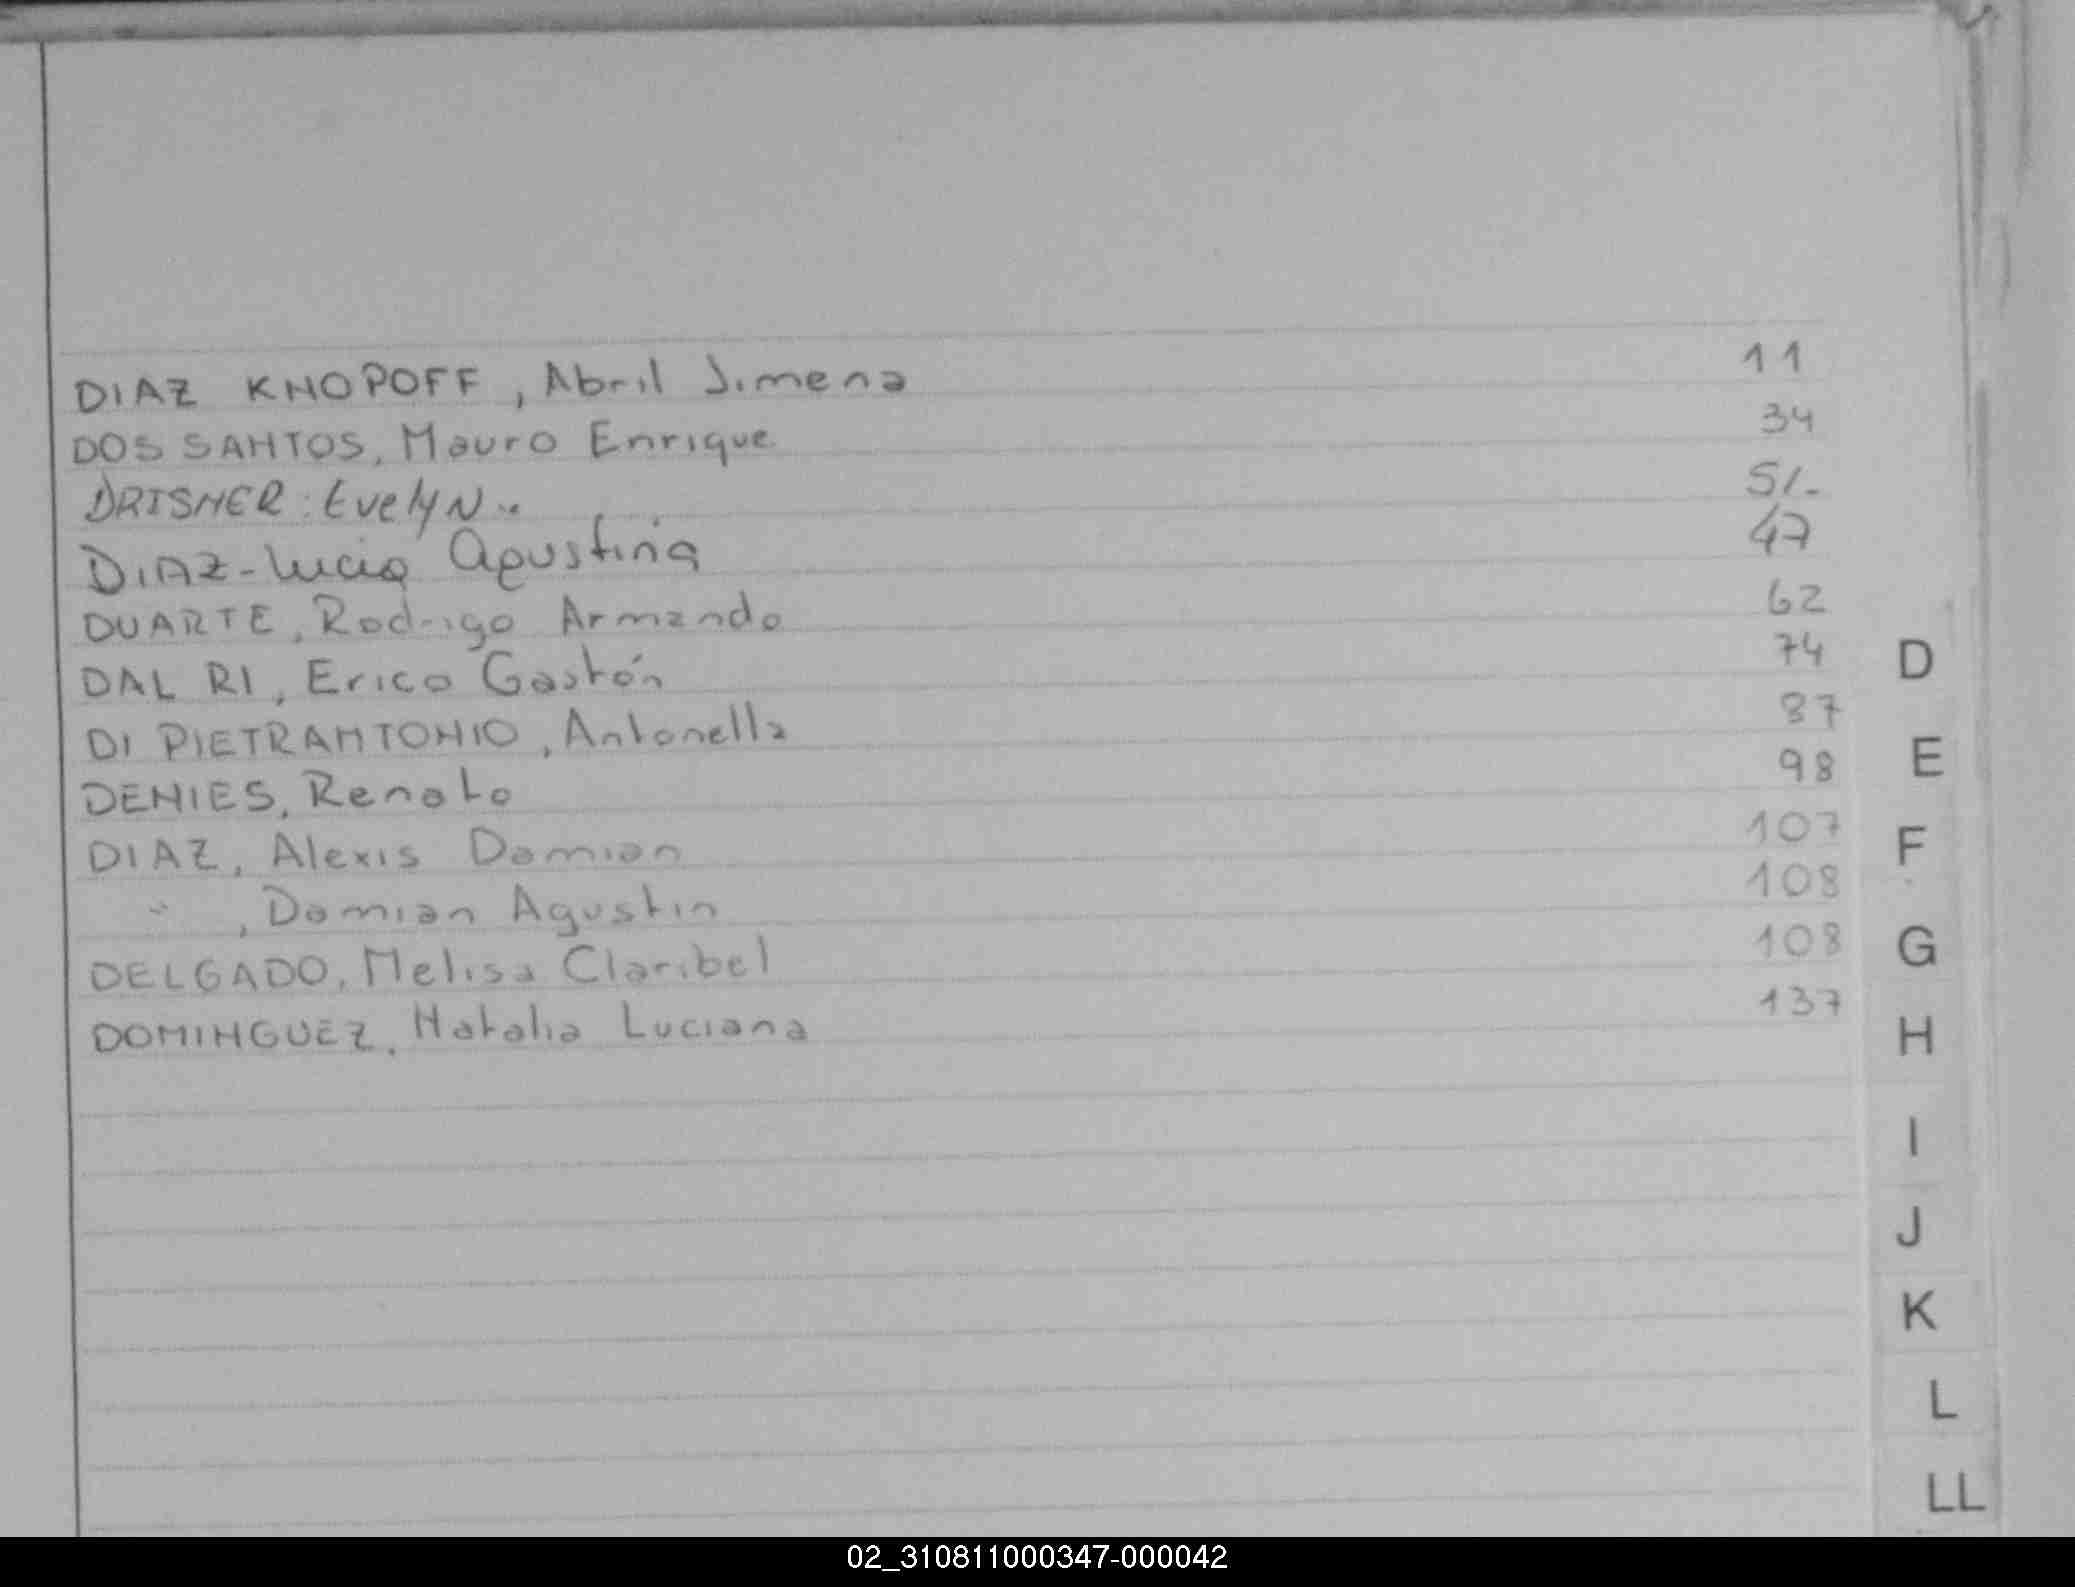 DIAZ KNOPOFF, Abril Jimena 11
DOS SANTOS, Mauro Enrique 34
DRISNER: EvelyN.. 51.
DIAZ-Lucia Agustina 47
DUARTE, Rodrigo Armando 62
DAL RI, Erico Gastón 74
DI PIETRANTONIO, Antonella 87
DENIES, Renato 98
DIAZ, Alexis Damian 107
" , Damian Agustin 108
DELGADO, Melisa Claribel 108
DOMINGUEZ, Natalia Luciana 137
D
E
F
G
H
I
J
K
L
LL
02_310811000347-000042